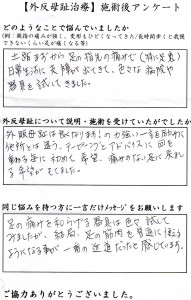 【外反母趾治療】施術後アンケート
どのようなことで悩んでいましたか
(例：親指の痛みが強く、変形もひどくなってきた/長時間歩くと我慢
できないくらい足が痛くなる等)
土踏まずから足の指の痛みで(特に足裏)
日常生活に支障が出てきて、色々な病院や
器具を試してきました。
外反母趾について説明・施術を受けていかがでしたか
外反母趾は良くなります！の力強い一言を頂き
他所とは違う、テーピングとアドバイスに回を
重ねる毎に初めて希望、痛みのない足に戻れ
る希望がもてました。
同じ悩みを持つ方に一言だけメッセージをお願いします
足の痛みを和らげる器具は色々試して
みましたが、結局、足の筋肉を普通に使える
ようになる事が一番の近道だったと感じています。
ご協力ありがとうございました。